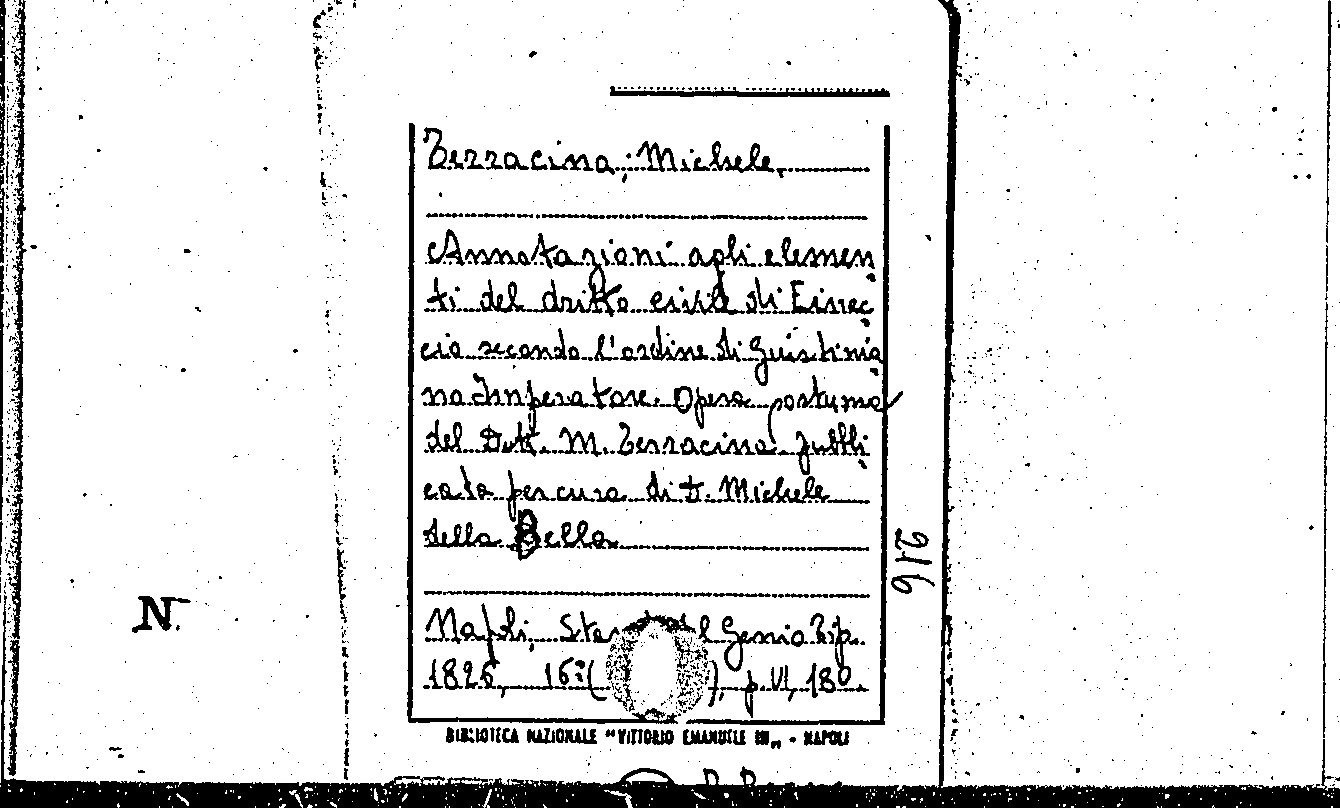 Terracina, Michele.
Annotazioni agli elemen
ti del dritto civile di Einec
cio secondo l'ordine di Giustinia
no Imperatore. Opera postuma
del Dott. M. Terracina pubbli
cata per cura di D. Michele
della Bella
216
N.
Napoli, del Genio Tip.
1826, 16º( ), p. VI, 180.
BIBLIOTECA NAZIONALE "VITTORIO EMANUELE III" - NAPOLI